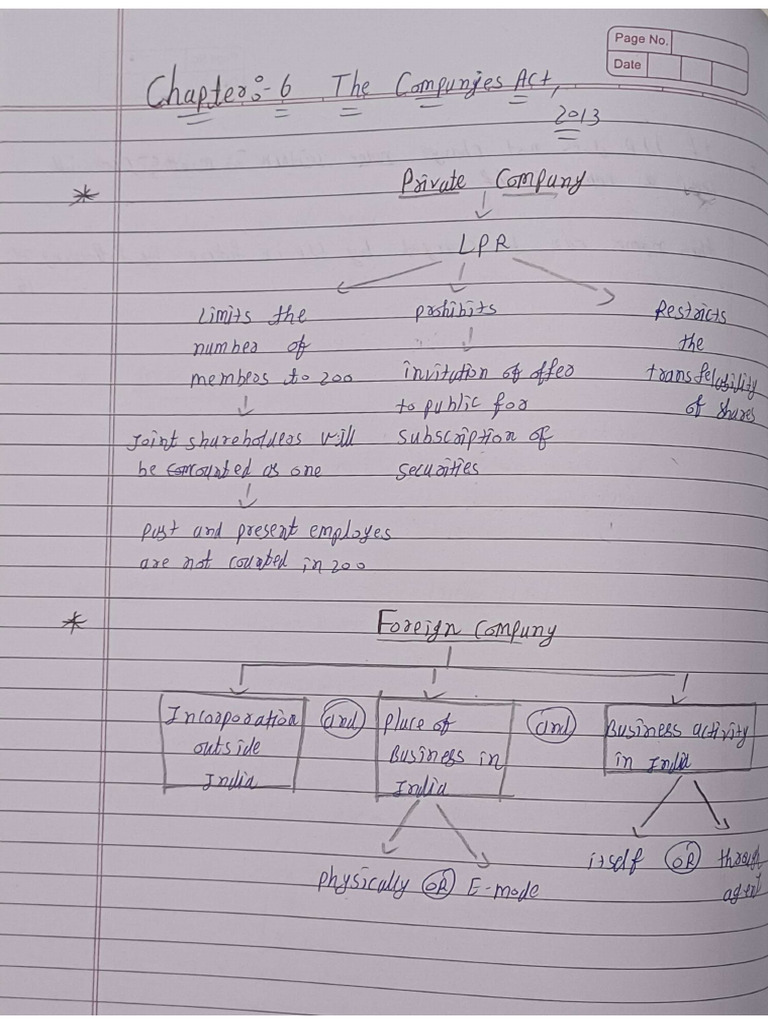 Page No.
Date
Chapter:-6 The Companies Act,
2013
* Private Company
LPR
Limits the
number of
members to 200
Joint shareholders will
be counted as one
Past and present employes
are not counted in 200
prohibits
invitation of offer
to public for
subscription of
securities
Restricts
the
transferability
of shares
* Foreign Company
Incorporation
outside
India
and
place of
Business in
India
and
Business activity
in India
physically OR E-mode
itself OR through
agent